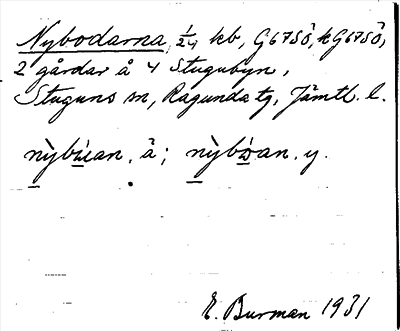 Nybodarna, 1/24 kb, G67SÖ, kG67SÖ,
2 gårdar å 4 Stugubyn,
Stuguns sn, Ragunda tg, Jämtl. l.
nỳbúan, ä; nỳbóan. y.
E. Burman 1931